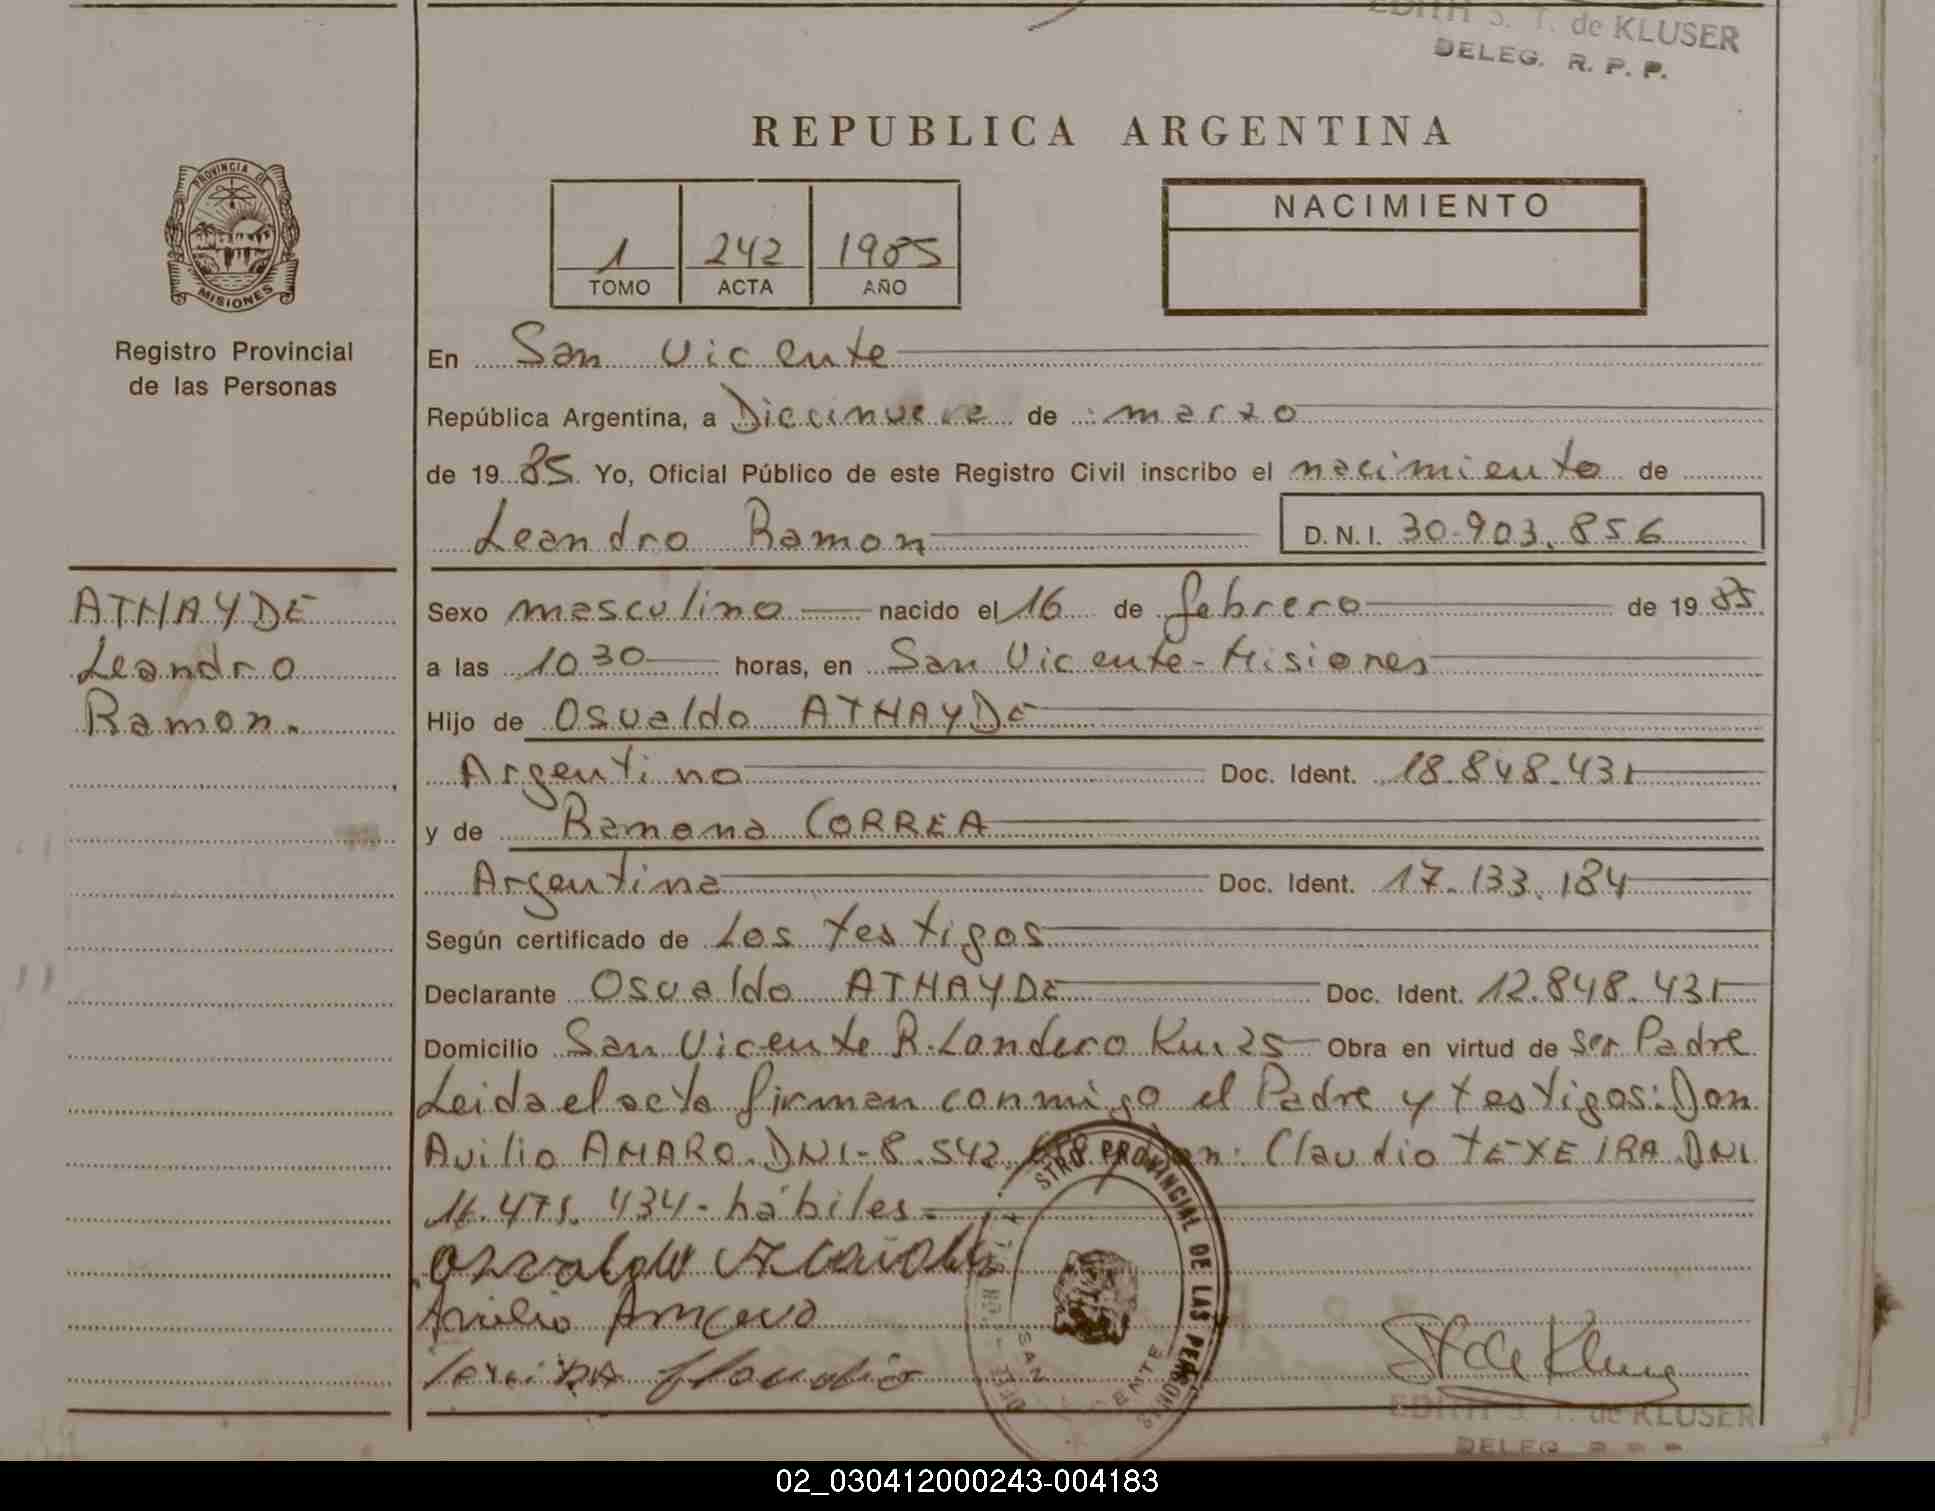 EDITH S. T. de KLUSER
DELEG. R. P. P.
REPUBLICA ARGENTINA
PROVINCIA DE
MISIONES
Registro Provincial
de las Personas
1 242 1985
TOMO ACTA AÑO
NACIMIENTO
En San Vicente
República Argentina, a Diecinueve de marzo
de 19 85 Yo, Oficial Público de este Registro Civil inscribo el nacimiento de
Leandro Ramon D.N.I. 30.903.856
ATHAYDE
Leandro
Ramon.
Sexo masculino nacido el 16 de febrero de 19 85
a las 10 30 horas, en San Vicente - Misiones
Hijo de Osvaldo ATHAYDE
Argentino Doc. Ident. 18.848.431
y de Ramona CORREA
Argentina Doc. Ident. 17.133.184
Según certificado de Los testigos
Declarante Osvaldo ATHAYDE Doc. Ident. 12.848.431
Domicilio San Vicente R. Landero Km 25 Obra en virtud de ser Padre
Leida el acta firman conmigo el Padre y testigos: Don
Avilio AMARO. DNI-8.542 y Don: Claudio TEXEIRA DNI
434- hábiles.
Avilio Amaro
Claudio
STRO PROVINCIAL DE LAS PERSONAS
SAN
EDITH S. T. de KLUSER
DELEG. R. P. P.
02_030412000243-004183